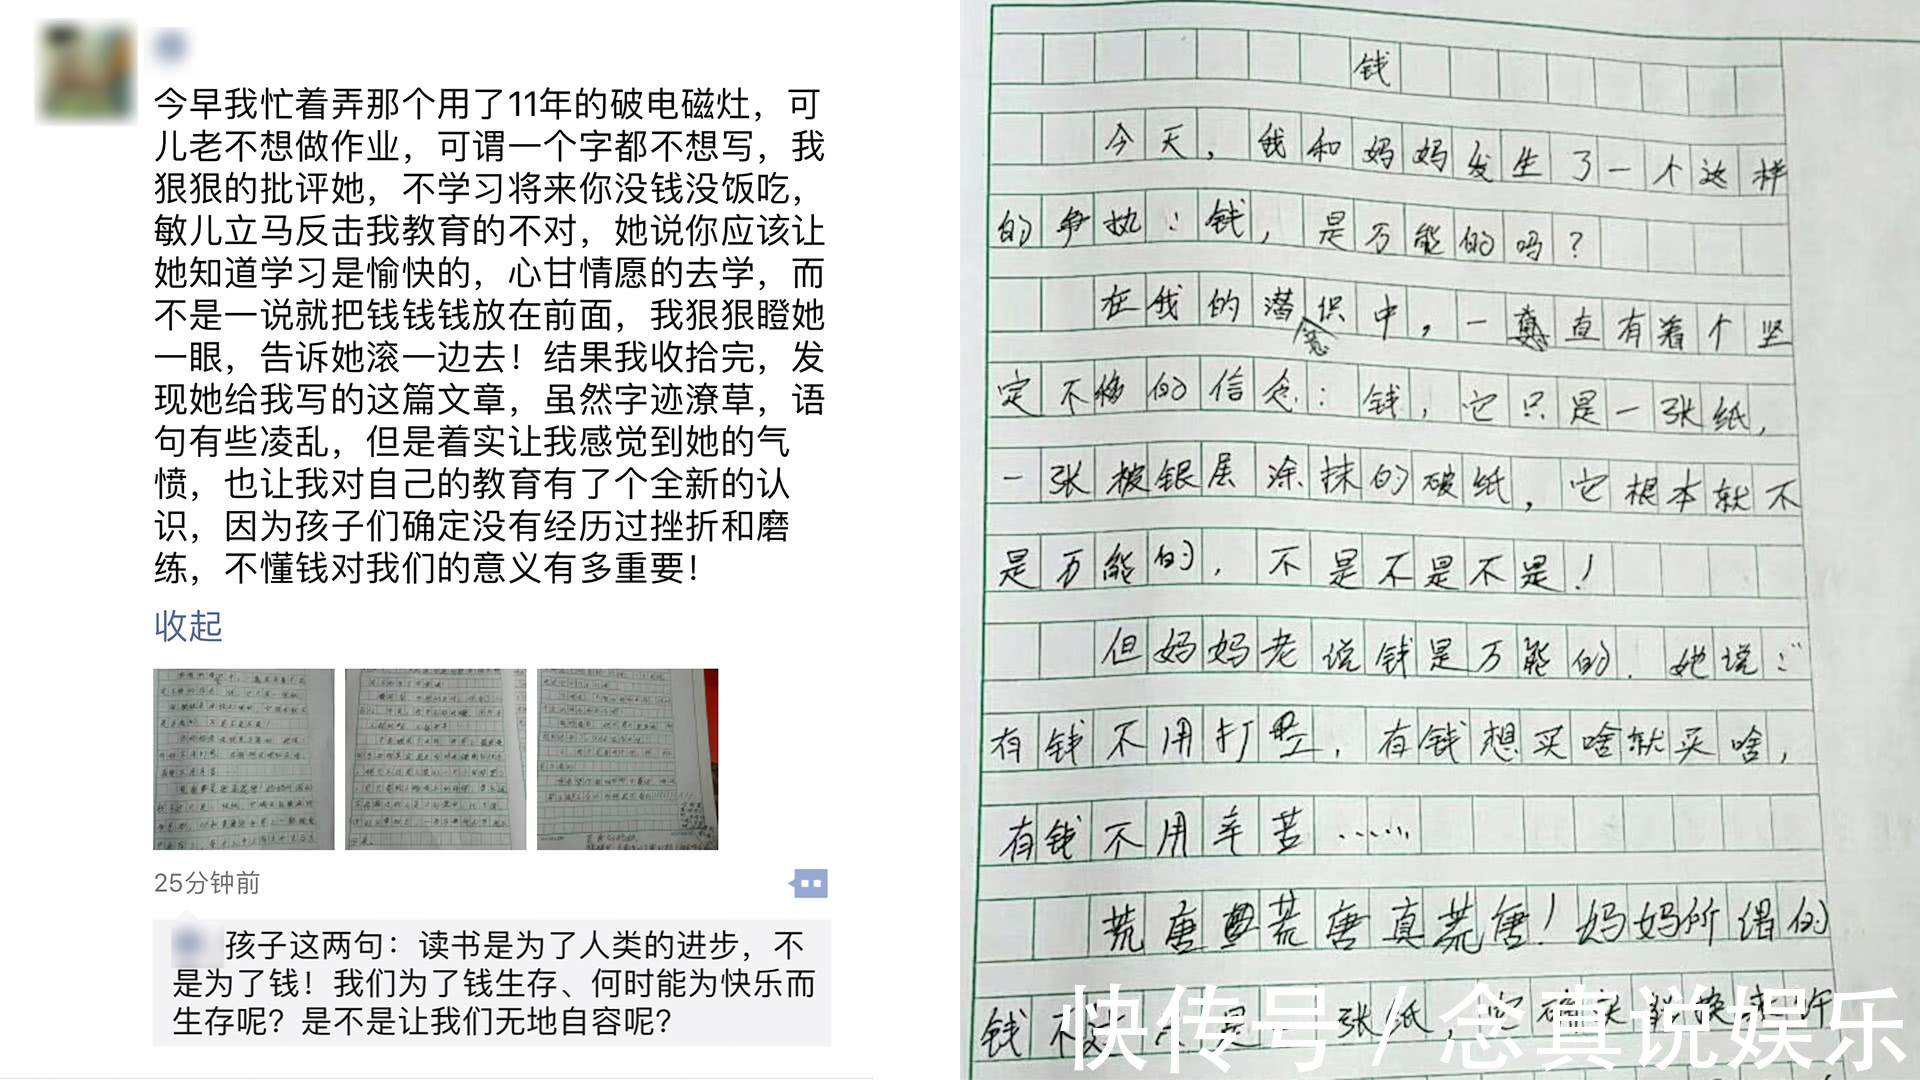 今早我忙着弄那个用了11年的破电磁灶，可
儿老不想做作业，可谓一个字都不想写，我
狠狠的批评她，不学习将来你没钱没饭吃，
敏儿立马反击我教育的不对，她说你应该让
她知道学习是愉快的，心甘情愿的去学，而
不是一说就把钱钱钱放在前面，我狠狠瞪她
一眼，告诉她滚一边去！结果我收拾完，发
现她给我写的这篇文章，虽然字迹潦草，语
句有些凌乱，但是着实让我感觉到她的气
愤，也让我对自己的教育有了个全新的认
识，因为孩子们确定没有经历过挫折和磨
练，不懂钱对我们的意义有多重要！
收起
25分钟前
孩子这两句：读书是为了人类的进步，不
是为了钱！我们为了钱生存、何时能为快乐而
生存呢？是不是让我们无地自容呢？
钱
今天，我和妈妈发生了一个这样
的争执：钱，是万能的吗？
在我的潜意识中，一直有着个坚
定不移的信念：钱，它只是一张纸，
一张被银层涂抹的破纸，它根本就不
是万能的，不是不是不是！
但妈妈老说钱是万能的．她说：
有钱不用打，有钱想买啥就买啥，
有钱不用辛苦……
荒唐荒唐真荒唐！妈妈所谓的
钱不过只是一张纸，它确实能换来许
快传号 / 念真说娱乐